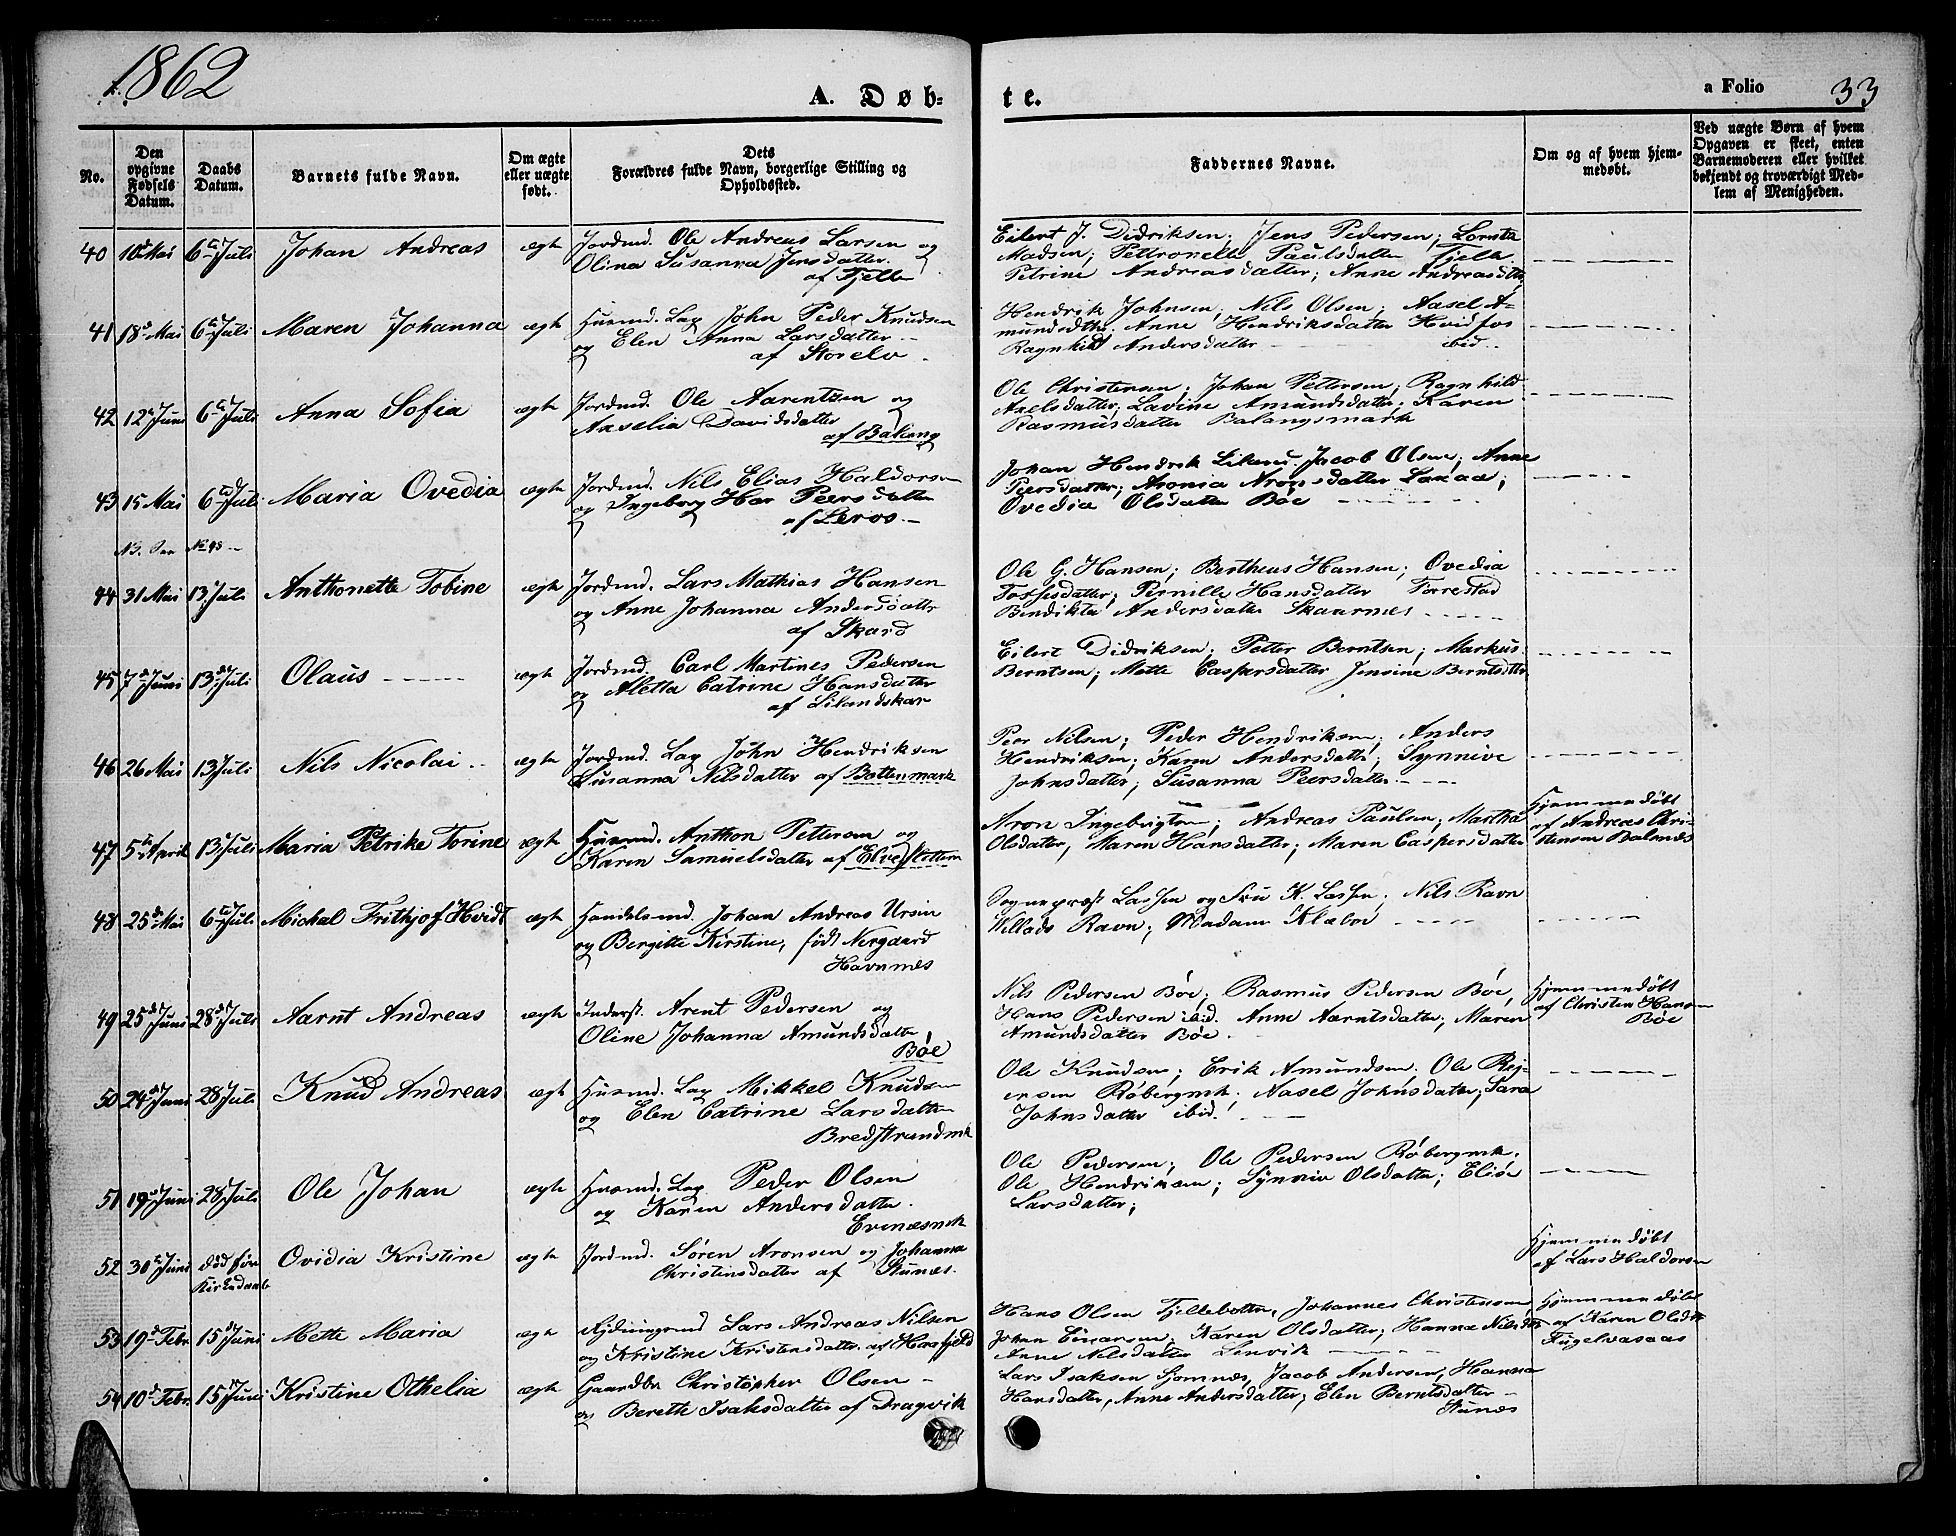 1862
A. Døb-
te.
a Folio 33
No.
Den opgivne Fødsels Datum.
Daabs Datum.
Barnets fulde Navn.
Om ægte eller uægte født.
Dets Forældres fulde Navn, borgerlige Stilling og Opholdssted.
Faddernes Navne.
Om og af hvem hjemmedøbt.
Ved uægte Børn af hvem Opgaven er skeet, enten Barnemoderen eller hvilket bekjendt og troværdigt Medlem af Menigheden.
40 10 Mai 6 Juli Johan Andreas ægte Jordmd. Ole Andreas Larsen og
Olina Susanna Jensdatter
af Fjelle
Eilert J. Didriksen; Jens Pedersen; Lorntz
Madsen; Pettronelle Paulsdatter Fjelle.
Petrine Andreasdatter; Anne Andreasdtr
41 18 Mai 6 Juli Maren Johanna ægte Husmd. Lap John Peder Knudsen
og Elen Anna Larsdatter
af Storelv
Hendrik Johnsen; Nils Olsen; Aasel A-
mundsdtr. Anne Hendriksdatter Hvidfos
Ragnhild Andersdatter ibid.
42 12 Juni 6 Juli Anna Sofia ægte Jordmd. Ole Aarentzen og
Axselia Davidsdatter
af Balang
Ole Christensen; Johan Pettersen; Ragnhild
Axelsdatter; Lavine Amundsdatter; Karen
Rasmusdatter Balangsmark
43 15 Mai 6 Juli Maria Ovedia ægte Jordmd. Nils Elias Haldorsen
og Ingeborg Peersdatter
af Leros
Johan Hendrik; Jacob Olsen; Anne
Peersdatter; Aronia Aronsdatter
Ovedia Olsdatter Bøe
NB. No 48
44 31 Mai 13 Juli Anthonette Tobine ægte Jordmd. Lars Mathias Hansen
og Anne Johanna Andersdattr
af Skard
Ole G. Hansen; Bertheus Hansen; Ovedia
Pernille Hansdatter Forrestad
Bendikta Andersdatter Skaarnes
45 7 Juni 13 Juli Olaus ægte Jordmd. Carl Martines Pedersen
og Aletta Catrine Hansdatter
af Lilandskar
Eilert Didriksen; Petter Berntsen; Markus
Berntsen; Mette Caspersdatter Jensine Berntsdtr
46 26 Mai 13 Juli Nils Nicolai ægte Jordmd. Lap John Hendriksen
Susanna Nilsdatter af Bottenmark
Peer Nilsen; Peder Hendriksen; Anders
Hendriksen; Karen Andersdattr; Synnive
Johnsdatter; Susanna Peersdatter
47 5 April 13 Juli Maria Petrike Torine ægte Husmd. Anthon Pettersen og
Karen Samuelsdatter af Elveslettem
Aron Ingebrigtsen; Andreas Paulsen; Martha
Olsdatter, Maren Hansdatter; Maren Caspersdatter
Hjemmedøbt
af Andreas Chri-
stensen Balnæs
48 25 Mai 6 Juli Michal Frithjof Hvidt ægte Handelsmd. Johan Andreas Ursin
og Bergitte Kirstine, født Nergaard
Havnnæs
Sognepræst Lassen og Fru K. Lassen; Nils Ravn
Willads Ravn; Madam Klæboe
49 25 Juni 28 Juli Aarnt Andreas ægte Inderst. Arent Pedersen og
Oline Johanna Amundsdatter
Bøe
Nils Pedersen Bøe; Rasmus Pedersen Bøe,
Hans Pedersen ibid. Anne Aarntsdatter; Maren
Amundsdatter Bøe.
Hjemmedøbt
af Christen Hansen
Bøe
50 24 Juni 28 Juli Knud Andreas ægte Husmd. Lap Mikkel Knudsen
og Elen Catrine Larsdatter
Bredstrandmk
Ole Knudsen; Erik Amundsen. Ole Rej-
ersen Røbergmk; Aasel Johnsdatter; Sara
Johnsdatter ibid.
51 19 Juni 28 Juli Ole Johan ægte Husmd. Lap Peder Olsen
og Karen Andersdatter.
Evenæsmk
Ole Pedersen; Ole Pedersen Røbergmk.
Ole Hendriksen; Synniv Olsdatter; Elise
Larsdatter;
52 30 Juni død før Kirkedaab Ovidia Kristine ægte Jordmd. Søren Aronsen og Johanna
Christinsdatter af Stunæs.
Hjemmedøbt
af Lars Haldorsen
53 19 Febr. 15 Juni Mette Maria ægte Rydningsmd Lars Andreas Nilsen
og Kristine Kristensdatter af Heresfjeld
Hans Olsen Fjellebotten, Johannes Christensen,
Johan Einarsen; Karen Olsdatter; Hanna Nilsdtr
Anne Nilsdatter Lenvik
Hjemmedøbt
af Karen Olsdtr
Fugelvasaas
54 10 Febr. 15 Juni Kristine Othelia ægte Gaardbr. Christopher Olsen
og Berethe Isaksdatter af Dragvik
Lars Isaksen, Jacob Andersen, Hanna
Hansdatter, Anne Andersdatter; Elen Berntsdatter
Stunæs